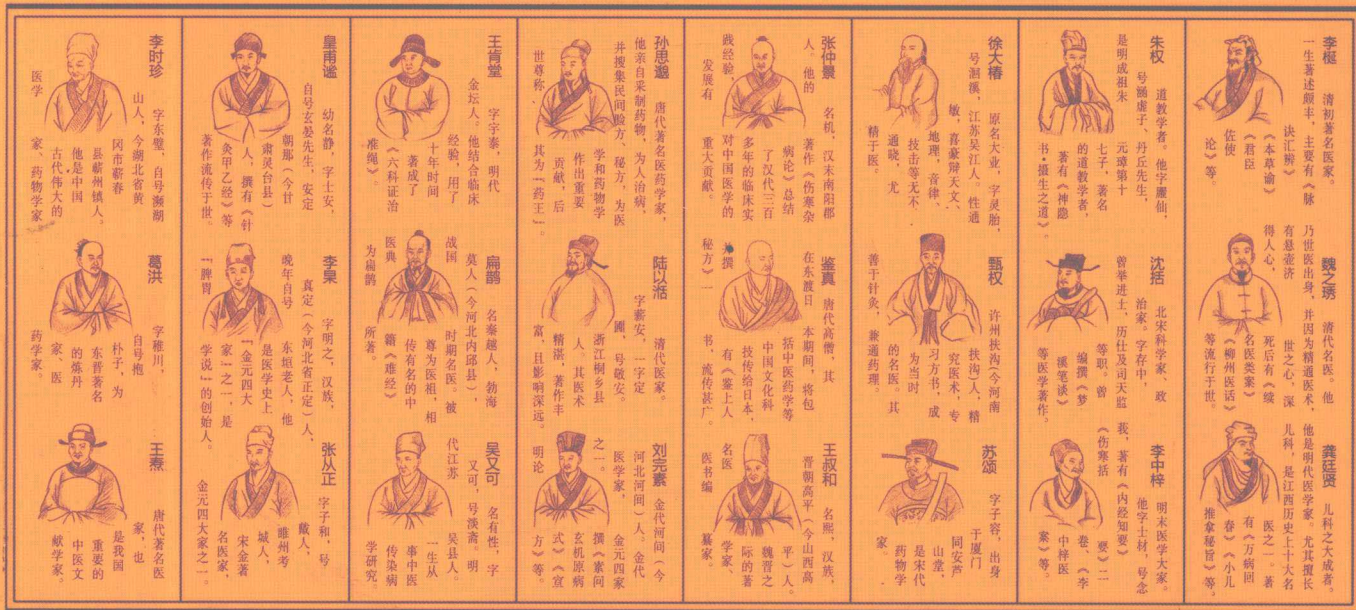 李梴 清初著名医家。他
一生著述颇丰，主要有《脉
诀汇辨》
《本草谕》
《君臣
佐使
论》等。
魏之琇 清代名医。他
乃世医出身，并因为精通医术，
有悬壶济世之心，深
得人心，死后有《续
名医类案》
《柳州医话》
等流行于世。
龚廷贤 儿科之大成者。
他是明代医学家。尤其擅长
儿科，是江西历史上十大名
医之一。著
有《万病回
春》《小儿
推拿秘旨》等。
朱权 道教学者。他字臞仙，
号臞虚子、丹丘先生，
是明成祖朱
元璋第十
七子，著名
的道教学者，
著有《神隐
书·摄生之道》。
沈括 北宋科学家、政
治家。字存中，
曾举进士，历仕及司天监
等职。曾
编撰《梦
溪笔谈》
等医学著作。
李中梓 明末医学大家。
他字士材，号念
莪，著有《内经知要》
《伤寒括要》二
卷、《李
中梓医
案》等。
徐大椿 原名大业，字灵胎，
号洄溪，江苏吴江人。性通
敏，喜豪辩天文、
地理、音律、
技击等无不
通晓，尤
精于医。
甄权 许州扶沟（今河南
扶沟）人，精
究医术，专
习方书，成
为当时
的名医。其
善于针灸，兼通药理。
苏颂 字子容，出身
于厦门
同安芦
山堂，
是宋代
药物学
家。
张仲景 名机，汉末南阳郡
人。他的著作《伤寒杂
病论》总结
了汉代三百
多年的临床实
践经验，对中国医学的
发展有重大贡献。
鉴真 唐代高僧，其
在东渡日本期间，将包
括中医药学等
中国文化科
技传给日本，
撰有《鉴上人
秘方》一书，流传甚广。
王叔和 名熙，汉族，
晋朝高平（今山西高
平）人。
魏晋之
际的著
名医学家、
医书编纂家。
孙思邈 唐代著名医药学家，
他亲自采制药物，为人治病，
并搜集民间验方、秘方，为医
学和药物学
作出重要
贡献，后
世尊称其为『药王』。
陆以湉 清代医家。
字薪安，一字定
圃，号敬安。
浙江桐乡县
人。其医术
精湛，著作丰
富，且影响深远。
刘完素 金代河间（今
河北河间）人。金代
医学家，金元四家
之一。撰《素问
玄机原病
式》《宣
明论方》等。
王肯堂 字宇泰，明代
金坛人。他结合临床
经验，用了
十年时间
著成了
《六科证治
准绳》。
扁鹊 名秦越人，勃海
莫人（今河北内邱县）
战国时期名医。被
尊为医祖，相
传有名的中
医典籍《难经》
为扁鹊所著。
吴又可 名有性，字
又可，号淡斋。明
代江苏吴县人。
一生从
事中医
传染病
学研究。
皇甫谧 幼名静，字士安，
自号玄晏先生，安定
朝那（今甘
肃灵台县）
人，撰有《针
灸甲乙经》等
著作流传于世。
李杲 字明之，汉族，
真定（今河北省正定）人，
晚年自号东垣老人，他
是医学史上
『金元四大
家』之一，是
『脾胃学说』的创始人。
张从正 字子和，号
戴人，
睢州考
城人，
宋金著
名医家，
金元四大家之一。
李时珍 字东璧，自号濒湖
山人，今湖北省黄
冈市蕲春
县蕲州镇人。
他是中国
古代伟大的
医学家、药物学家
葛洪 字稚川，
自号抱
朴子，为
东晋著名
的炼丹
家、医
药学家。
王焘 唐代著名医
家，也
是我国
重要的
中医文
献学家。